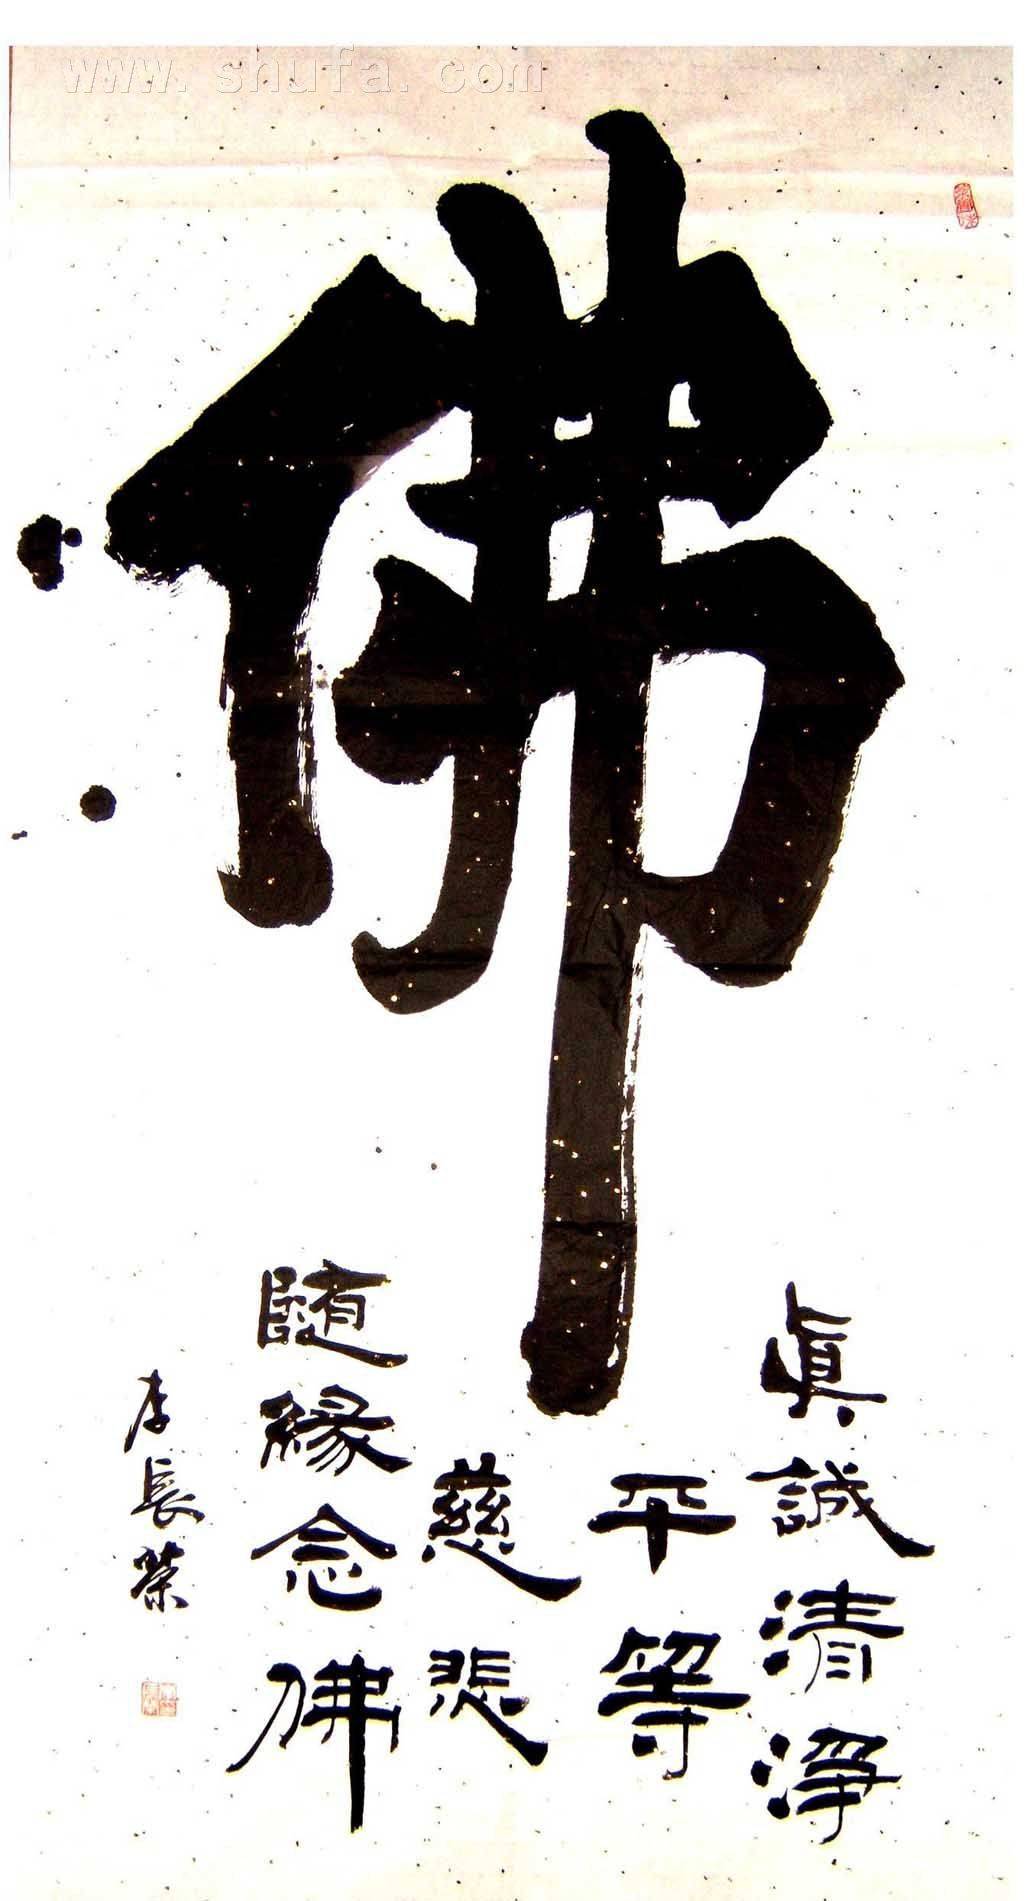 www.shufa.com
佛
眞誠清淨
平等
慈悲
随緣念佛
李長榮